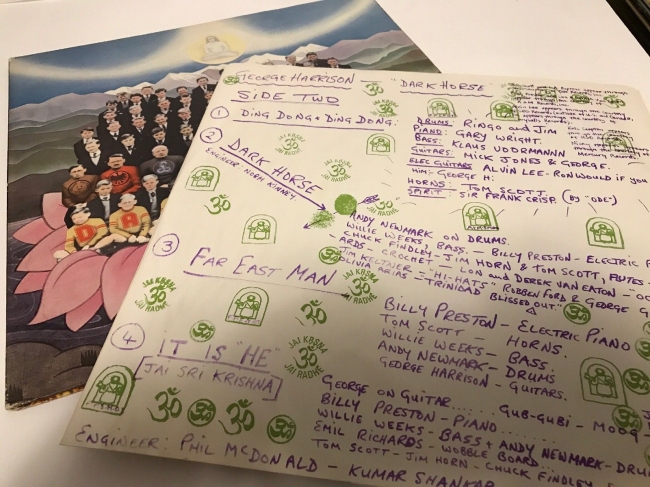 GEORGE HARRISON — "DARK HORSE
SIDE TWO
① DING DONG + DING DONG:
DRUMS: RINGO and JIM
PIANO: GARY WRIGHT.
BASS: KLAUS VOORMANN
GUITARS: MICK JONES & GEORGE.
ELEC GUITARS ALVIN LEE - RON WOULD IF YOU
HIM - GEORGE H:
HORNS: TOM SCOTT.
SPIRIT: SIR FRANK CRISP. (BY "ODE")
② DARK HORSE
ENGINEER NORM KINNEY.
ANDY NEWMARK ON DRUMS.
WILLIE WEEKS, BASS - BILLY PRESTON - ELECTRIC P
- CHUCK FINDLEY - JIM HORN & TOM SCOTT, FLUTES -
ARDS - CROCHET - LON and DEREK VAN EATON - OC
JIM KELTNER - "HI-HATS" ROBBEN FORD & GEORGE G
OLIVIA ARIAS - TRINIDAD BLISSED OUT"
③ FAR EAST MAN
BILLY PRESTON - ELECTRIC PIANO
TOM SCOTT - HORNS.
WILLIE WEEKS - BASS.
ANDY NEWMARK - DRUMS
GEORGE HARRISON - GUITARS.
④ IT IS "HE"
JAI SRI KRISHNA
GEORGE ON GUITAR..... GUB-GUBI - MOOG -
BILLY PRESTON - PIANO......
WILLIE WEEKS - BASS + ANDY NEWMARK - DRU
EMIL RICHARDS - WOBBLE BOARD...
TOM SCOTT - JIM HORN - CHUCK FINDLEY
ENGINEER: PHIL McDONALD - KUMAR SHANKAR
JAI KRSNA
JAI RADHE
ॐ
D A